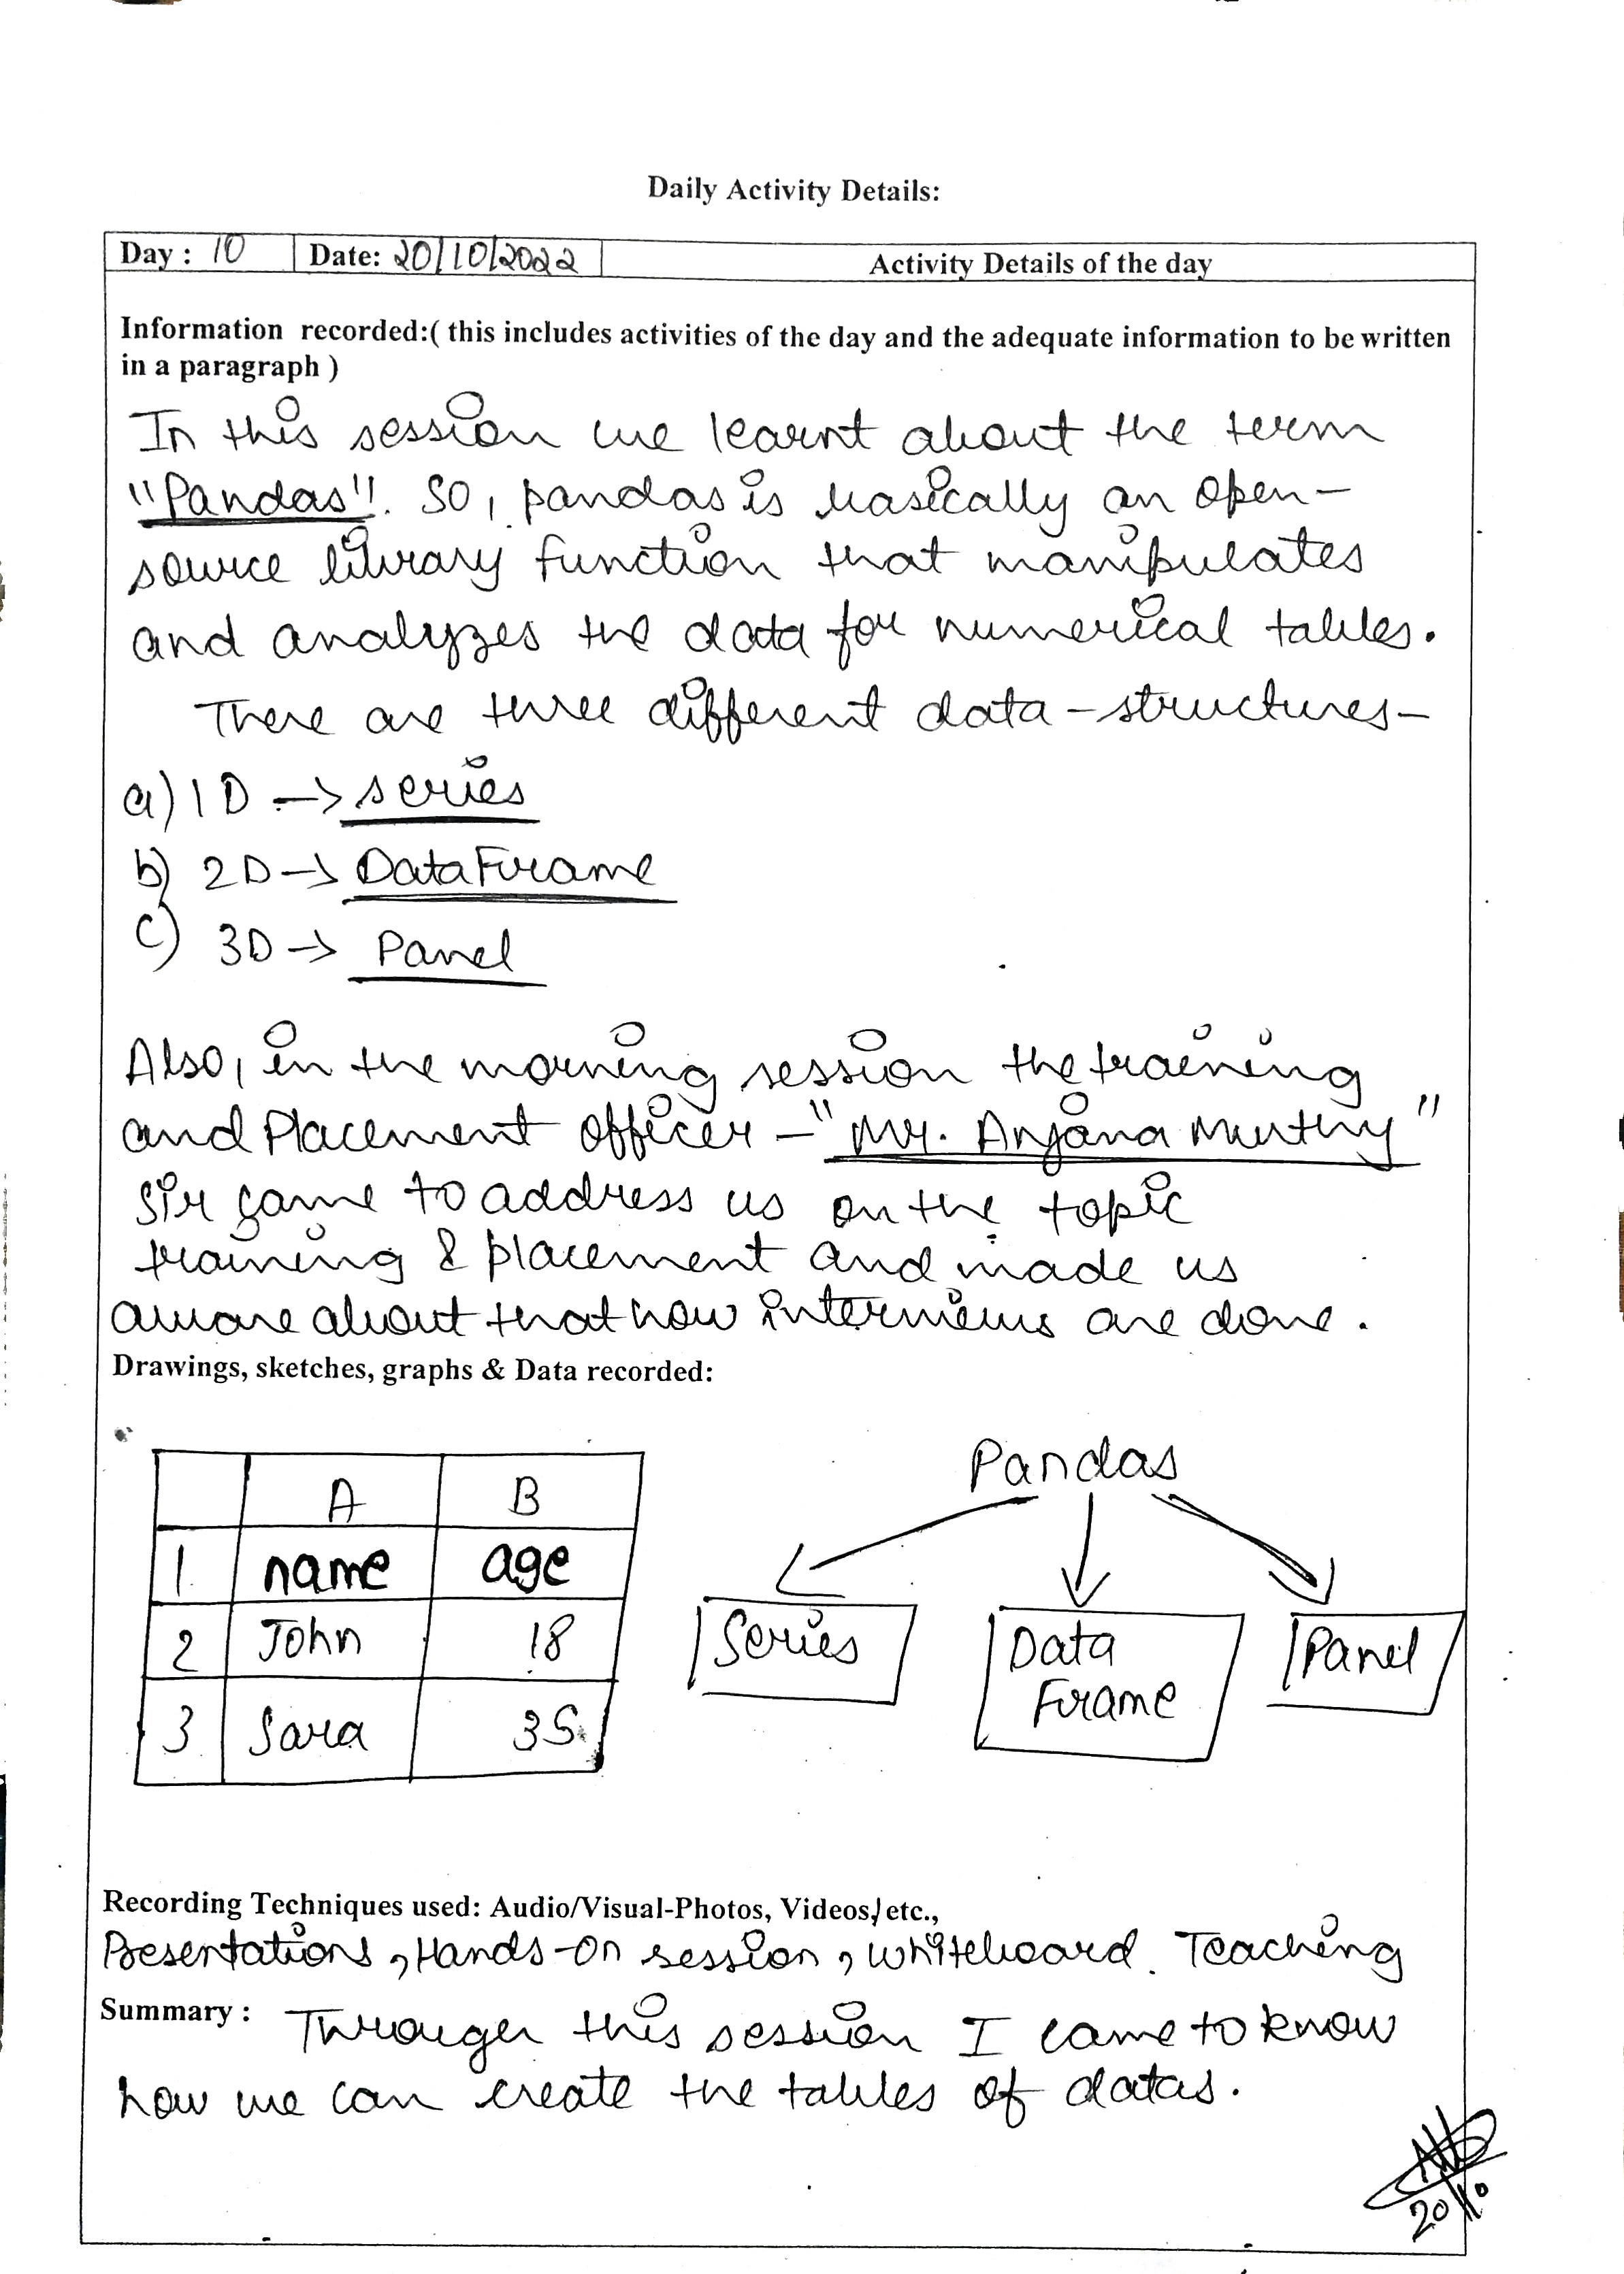 Daily Activity Details:
Day : 10 Date: 20/10/2022 Activity Details of the day
Information recorded:( this includes activities of the day and the adequate information to be written
in a paragraph )
In this session we learnt about the term
"Pandas". So, pandas is basically an open-
source library function that manipulates
and analyzes the data for numerical tables.
There are three different data-structures-
a) 1D -> series
b) 2D -> DataFrame
c) 3D -> Panel
Also, in the morning session the training
and Placement Officer - "Mr. Anjana Murthy"
Sir came to address us on the topic
training & placement and made us
aware about that how interviews are done.
Drawings, sketches, graphs & Data recorded:
A B
1 name age
2 John 18
3 Sara 35
Pandas
Series
Data
Frame
Panel
Recording Techniques used: Audio/Visual-Photos, Videos, etc.,
Presentations, Hands-On session, Whiteboard Teaching
Summary : Through this session I came to know
how we can create the tables of datas.
20/10